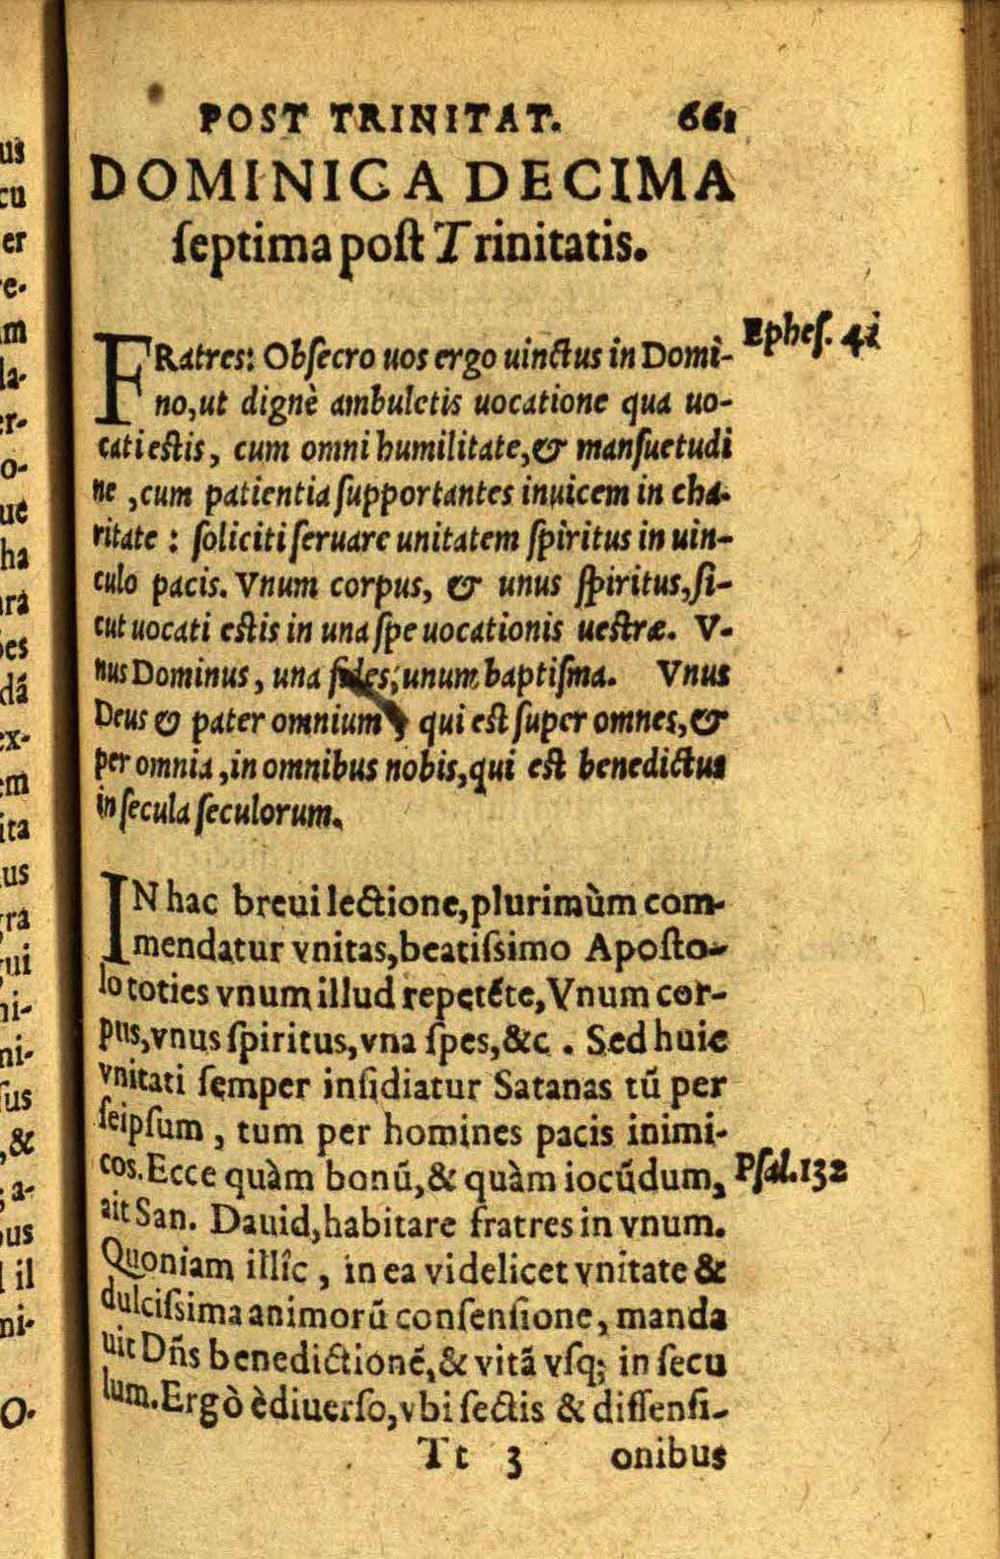 POST TRINITAT. 661
DOMINICA DECIMA
ſeptima poſt Trinitatis.
Epheſ. 4
FRatres: Obſecro uos ergo uinctus in Domi-
no, ut dignè ambuletis uocatione qua uo-
cati eſtis, cum omni humilitate, & manſuetudi
ne, cum patientia ſupportantes inuicem in cha-
ritate: ſoliciti ſeruare unitatem ſpiritus in uin-
culo pacis. Vnum corpus, & unus ſpiritus, ſi-
cut uocati eſtis in una ſpe uocationis ueſtræ. V-
nus Dominus, una fides, unum baptiſma. Vnus
Deus & pater omnium, qui eſt ſuper omnes, &
per omnia, in omnibus nobis, qui eſt benedictus
in ſecula ſeculorum.
IN hac breui lectione, plurimùm com-
mendatur vnitas, beatiſsimo Apoſto-
lo toties vnum illud repetẽte, Vnum cor-
pus, vnus ſpiritus, vna ſpes, &c. Sed huic
vnitati ſemper inſidiatur Satanas tũ per
ſeipſum, tum per homines pacis inimi-
cos. Ecce quàm bonũ, & quàm iocũdum,
Pſal. 132
ait San. Dauid, habitare fratres in vnum.
Quoniam illîc, in ea videlicet vnitate &
dulciſsima animorũ conſenſione, manda
uit Dñs benedictionẽ, & vitã vſq; in ſecu
lum. Ergò è diuerſo, vbi ſectis & diſſenſi-
Tt 3 onibus